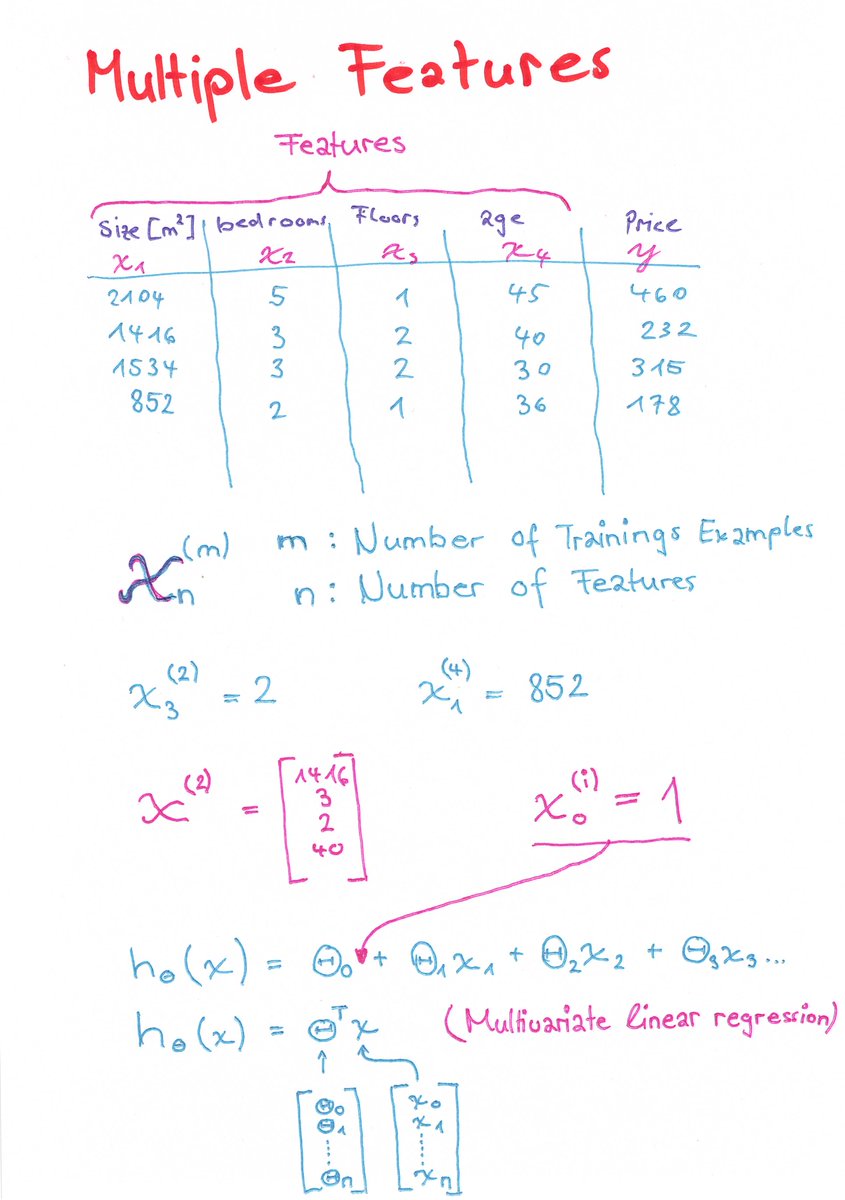 Multiple Features
Features
Size [m²] bedrooms Floors age Price
x₁ x₂ x₃ x₄ y
2104 5 1 45 460
1416 3 2 40 232
1534 3 2 30 315
852 2 1 36 178
xₙ⁽ᵐ⁾ m : Number of Trainings Examples
n : Number of Features
x₃⁽²⁾ = 2 x₁⁽⁴⁾ = 852
x⁽²⁾ = [1416 3 2 40] x₀⁽ⁱ⁾ = 1
h_Θ(x) = Θ₀ + Θ₁x₁ + Θ₂x₂ + Θ₃x₃...
h_Θ(x) = Θᵀx (Multivariate linear regression)
Θ₀ x₀
Θ₁ x₁
Θₙ xₙ